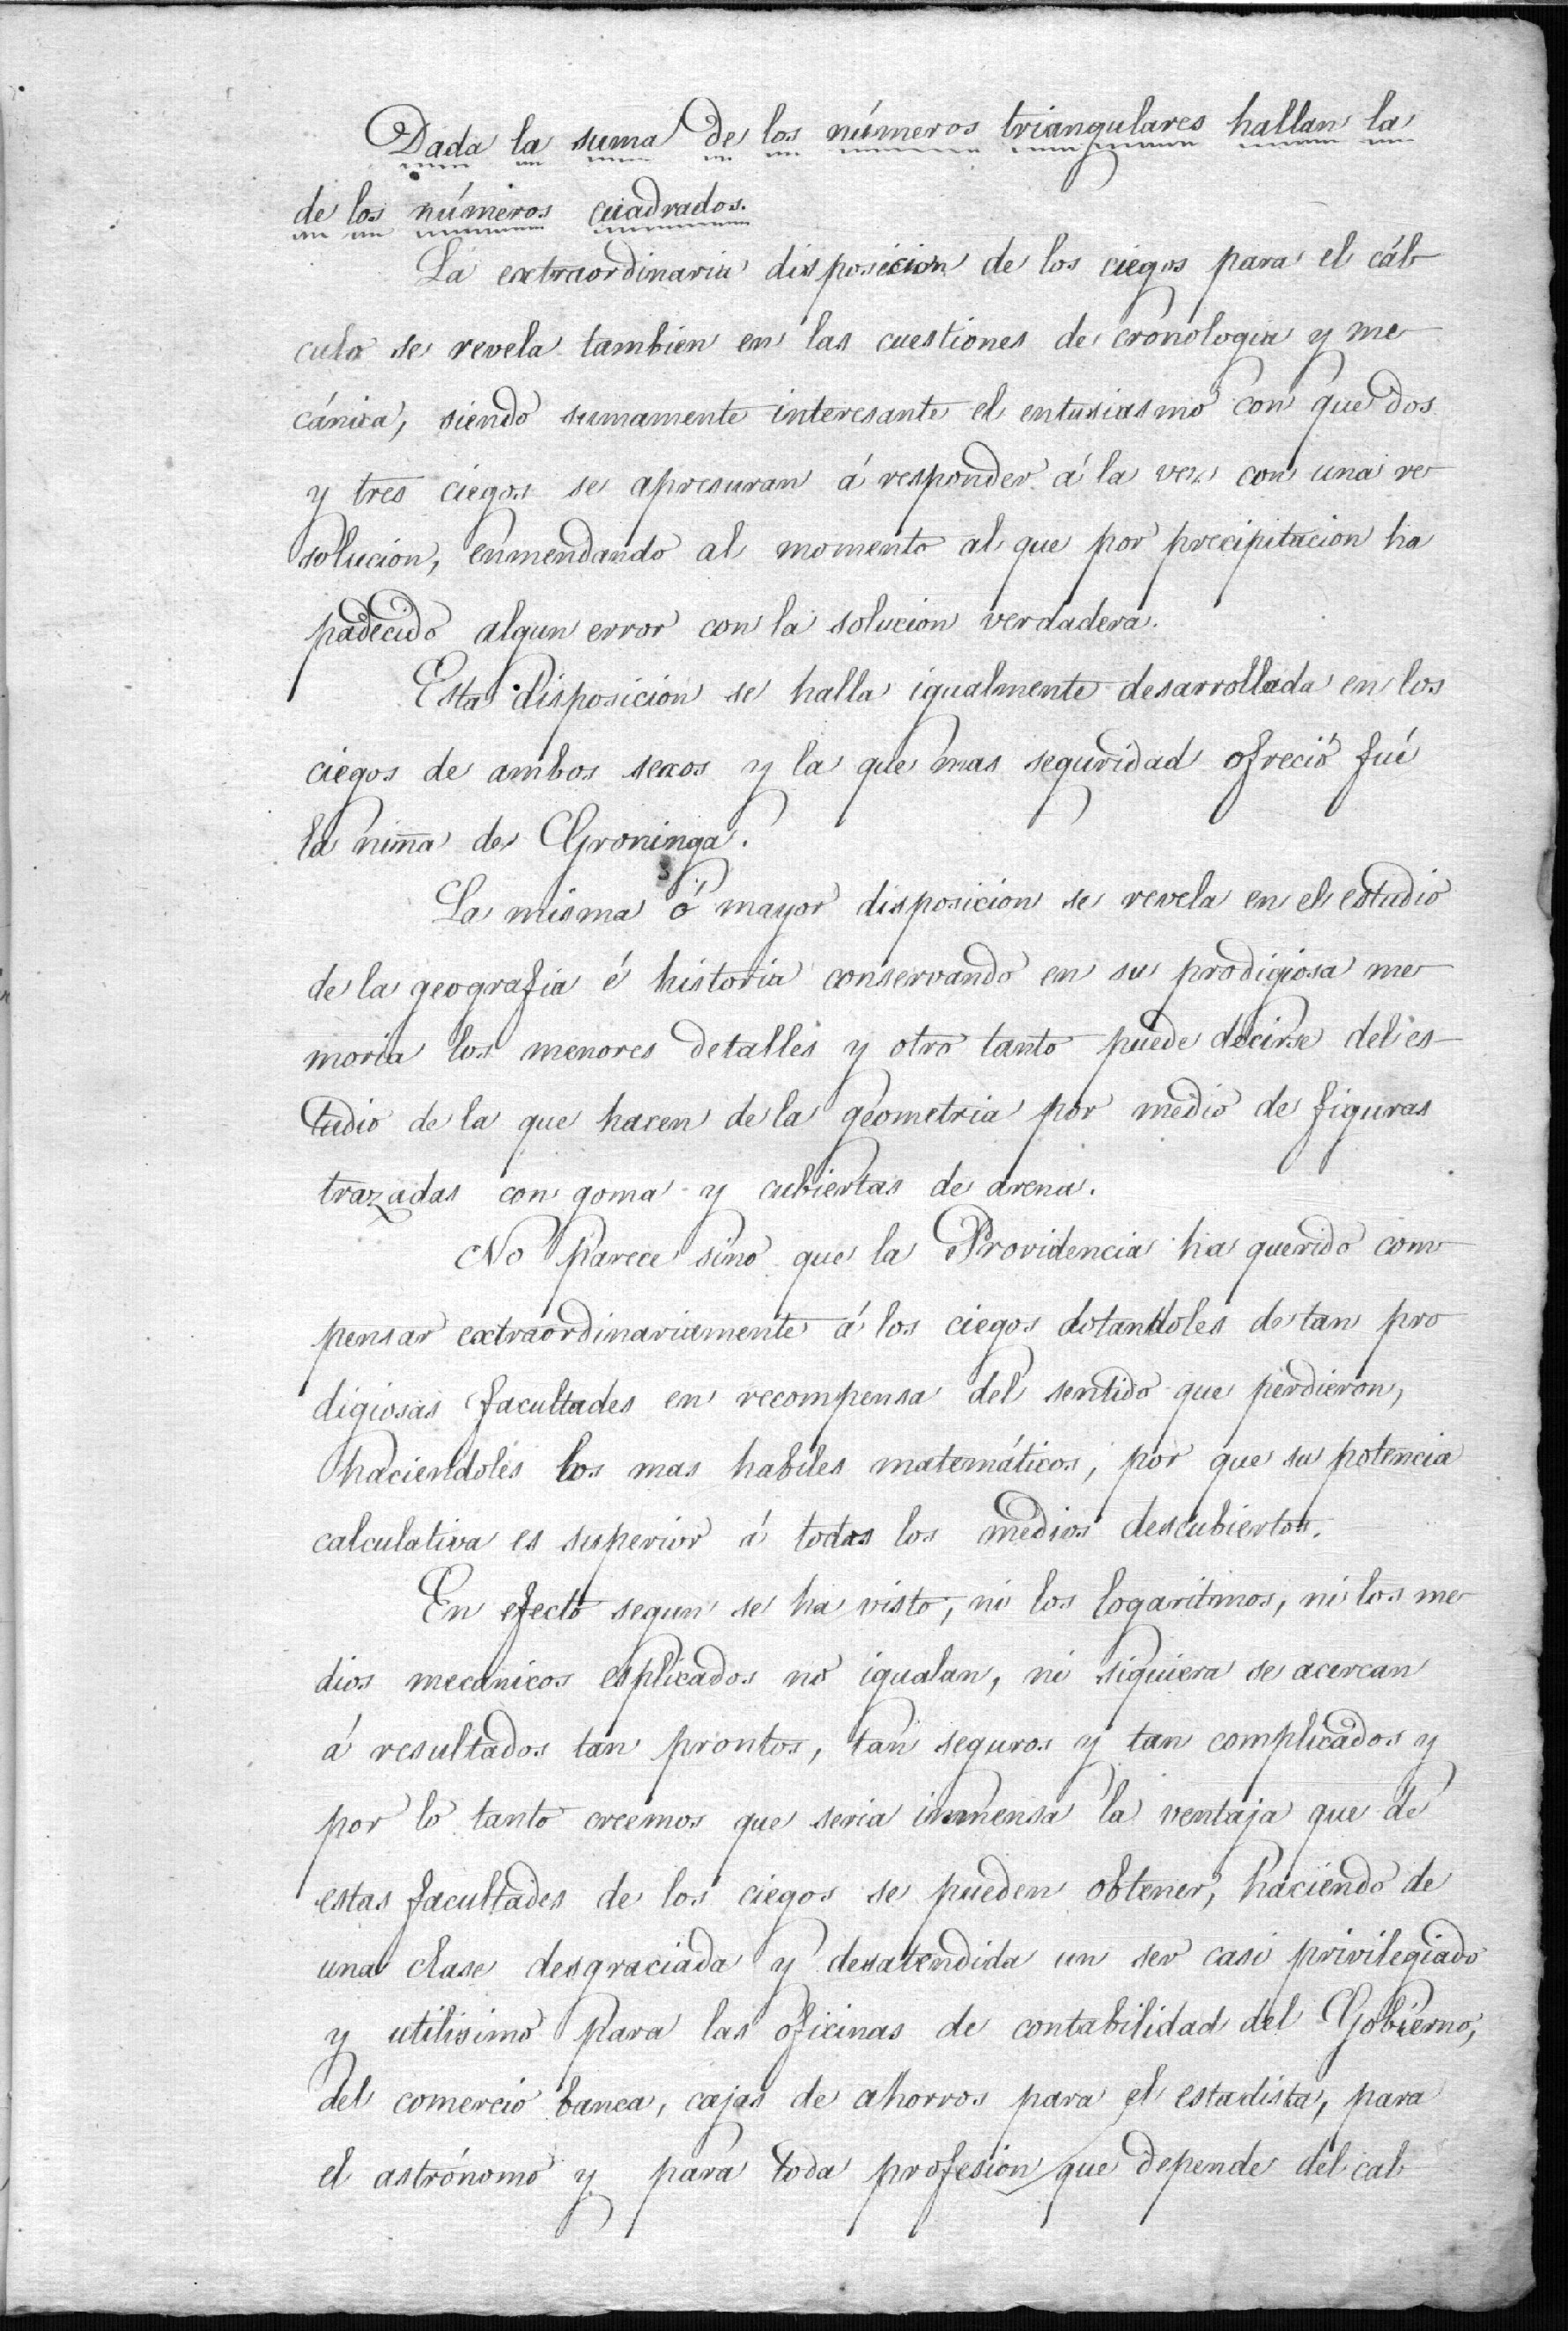 Dada la suma de los números triangulares hallan la
de los números cuadrados.
La extraordinaria disposicion de los ciegos para el cál-
culo se revela tambien en las cuestiones de cronologia y me-
cánica, siendo sumamente interesante el entusiasmo con que dos
y tres ciegos se apresuran á responder á la vez con una re-
solucion, enmendando al momento al que por precipitacion ha
padecido algun error con la solucion verdadera.
Esta disposicion se halla igualmente desarrollada en los
ciegos de ambos sexos y la que mas seguridad ofreció fué
la niña de Groninga.
La misma ó mayor disposicion se revela en el estudio
de la geografia é historia conservando en su prodigiosa me-
moria los menores detalles y otro tanto puede decirse del es-
tudio de la que hacen de la geometria por medio de figuras
trazadas con goma y cubiertas de arena.
No parece sino que la Providencia ha querido com-
pensar extraordinariamente á los ciegos dotandoles de tan pro
digiosas facultades en recompensa del sentido que perdieron,
haciendoles los mas habiles matemáticos, por que su potencia
calculativa es superior á todos los medios descubiertos.
En efecto segun se ha visto, ni los logaritmos, ni los me-
dios mecanicos esplicados no igualan, ni siquiera se acercan
á resultados tan prontos, tan seguros y tan complicados y
por lo tanto creemos que seria inmensa la ventaja que de
estas facultades de los ciegos se pueden obtener, haciendo de
una clase desgraciada y desatendida un ser casi privilegiado
y utilisimo para las oficinas de contabilidad del Gobierno,
del comercio banca, cajas de ahorros para el estadista, para
el astrónomo y para toda profesion que depende del cal-